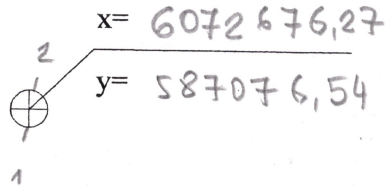 x= 6072676,27
2
y= 587076,54
1